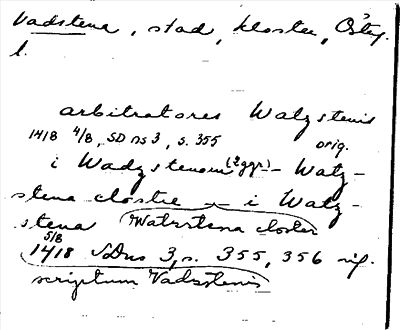 Vadstena, stad, kloster, Östg.
l.
arbitratores Watzstenis
1418 4/8, SD ns 3, s. 355 orig.
i Wadzstenom (2 ggr) - Watz-
stena clostre - i Watz-
stena Watzstena closter
5/8
1418 SDns 3, s. 355, 356
scriptum Vadzstenis